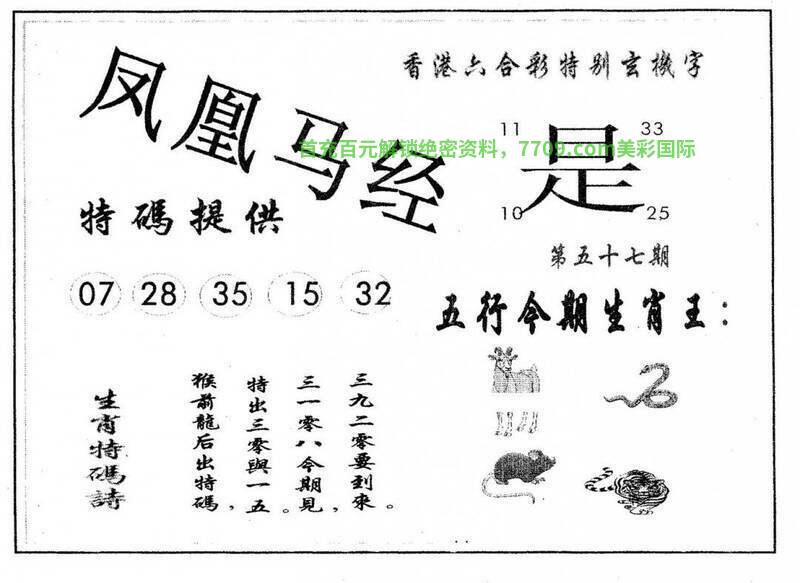 凤凰马经
香港六合彩特别玄機字
首充百元解锁绝密资料，7709.com美彩国际
11
33
是
10
25
特碼提供
第五十七期
07 28 35 15 32
五行今期生肖王：
生肖特碼詩
三九二零要到來。
三一零八今期見，
特出三零與一五。
猴前龍后出特碼，